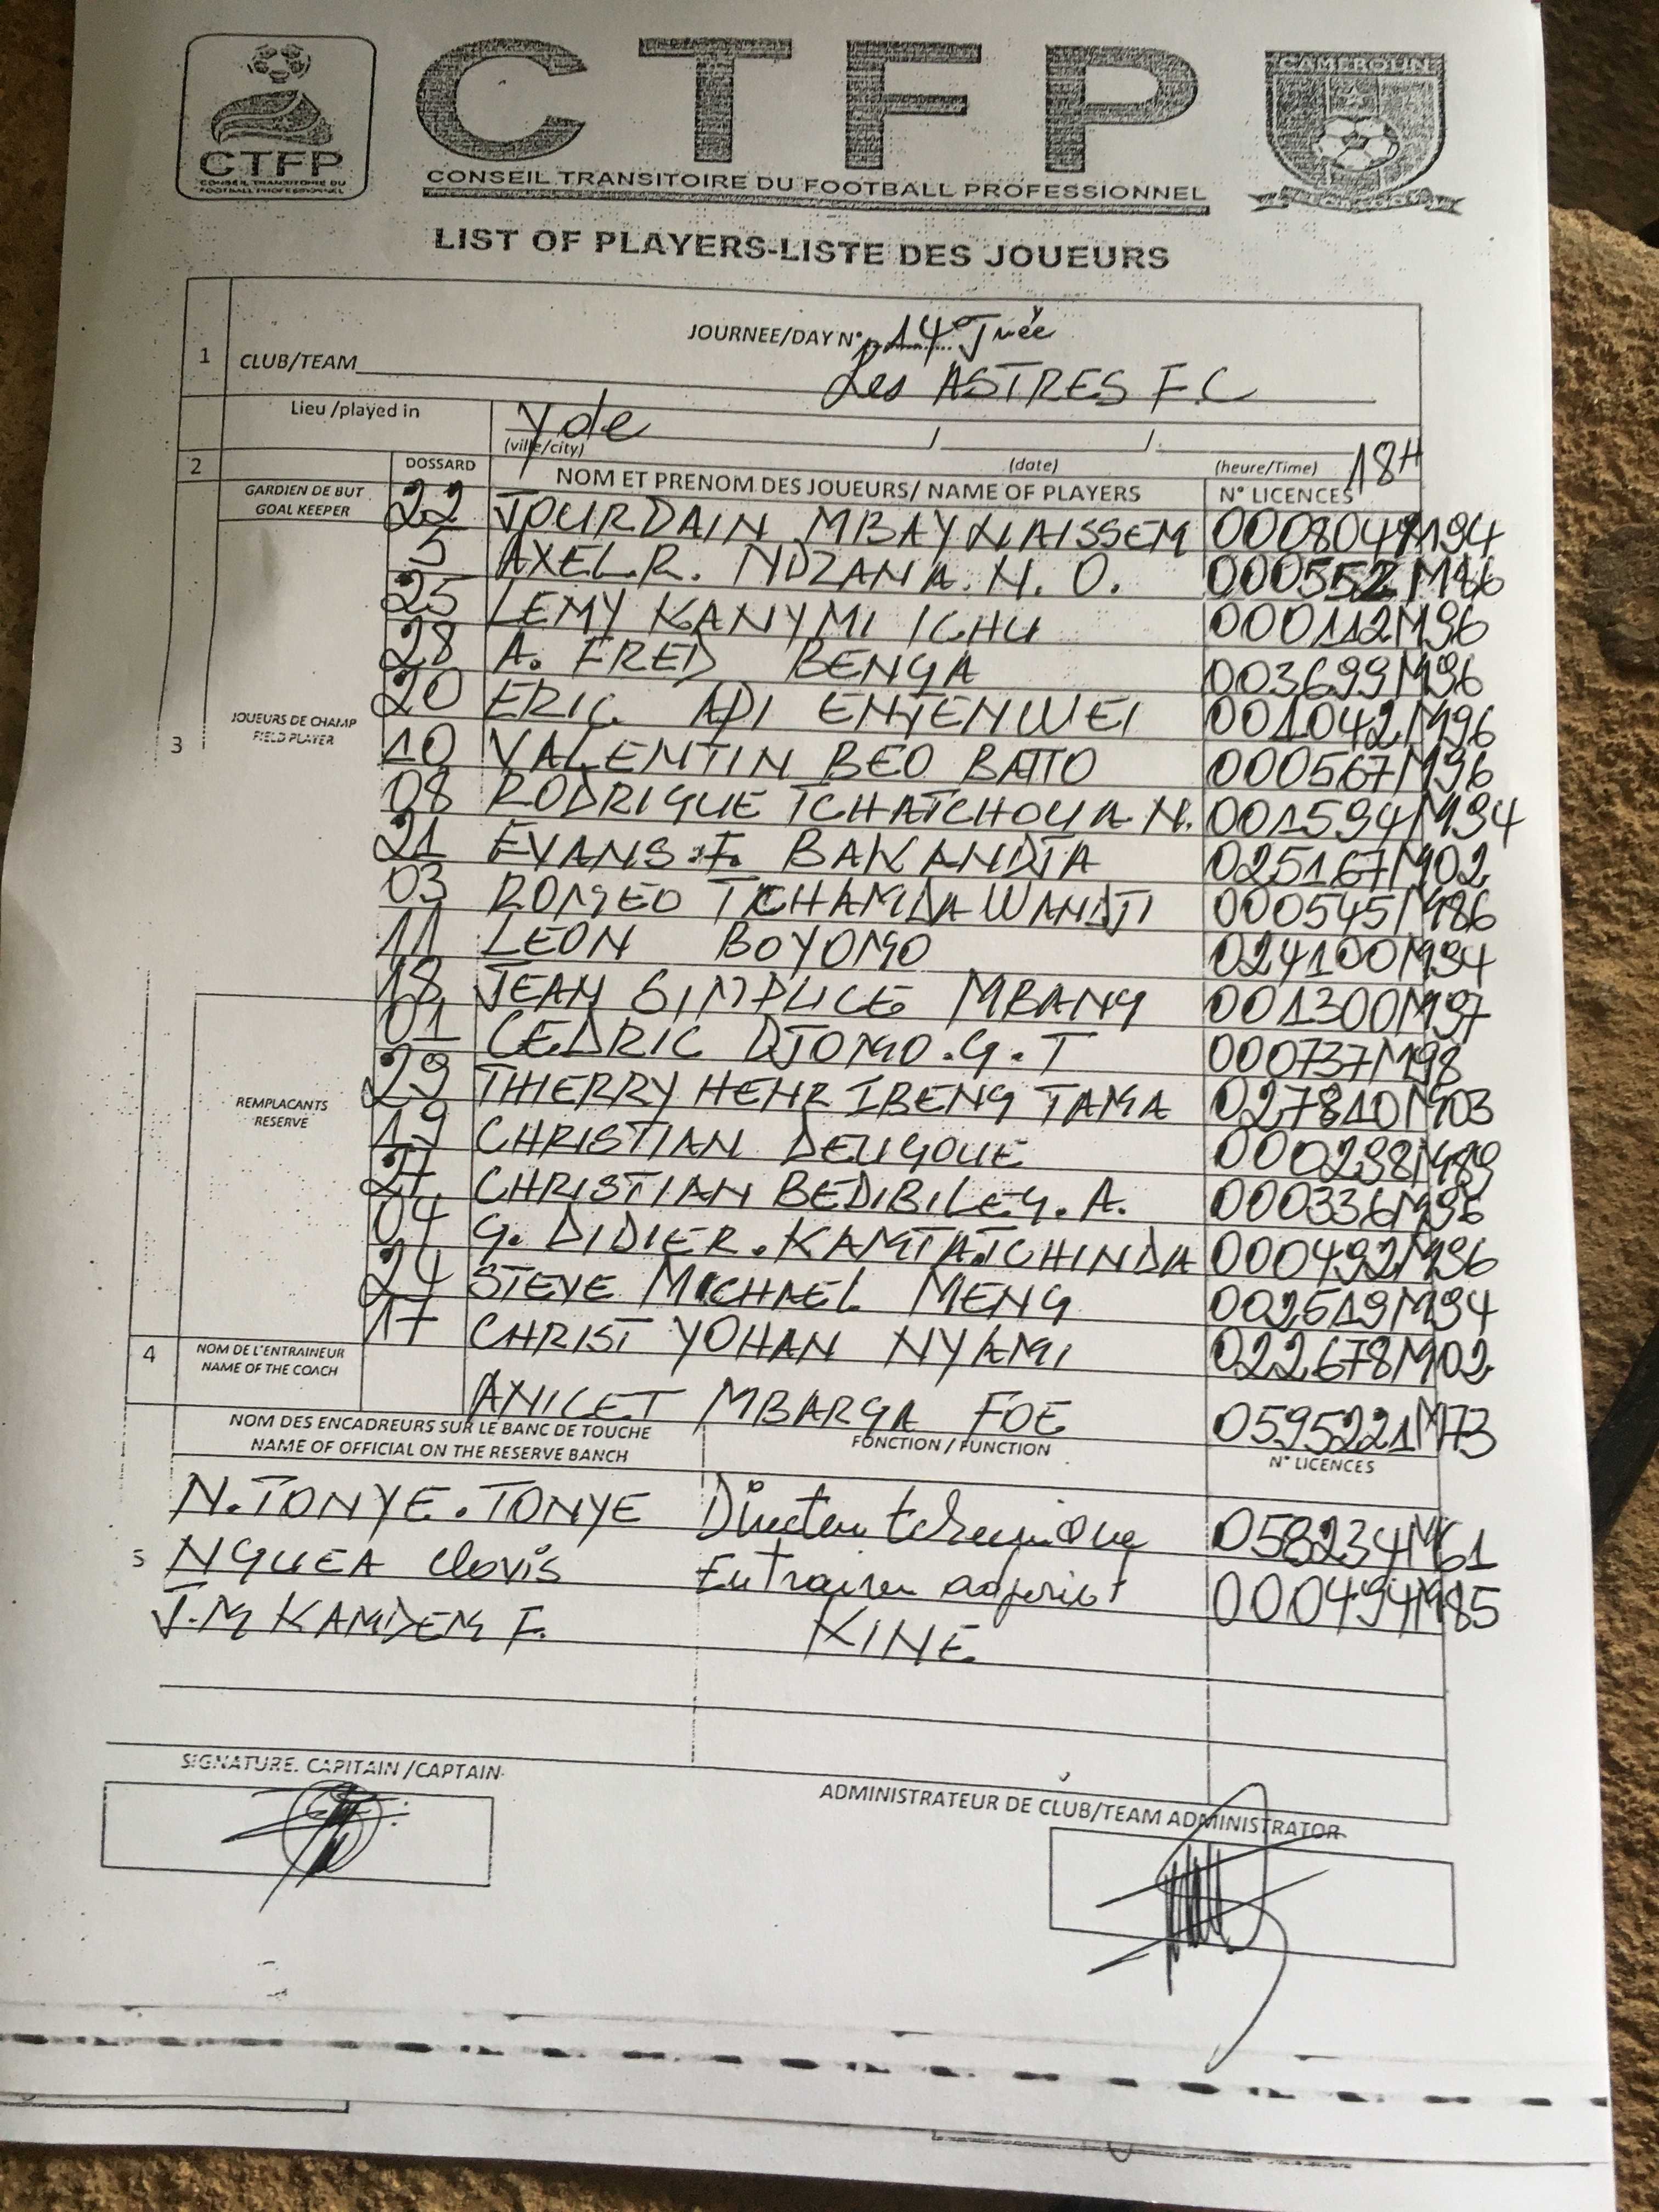 CTFP
CONSEIL TRANSITOIRE DU
FOOTBALL PROFESSIONNEL
CTFP
CAMEROUN
CONSEIL TRANSITOIRE DU FOOTBALL PROFESSIONNEL
LIST OF PLAYERS-LISTE DES JOUEURS
1
JOURNEE/DAY N° 14° Jnée
CLUB/TEAM Les ASTRES F.C
Lieu /played in Yde / /
(ville/city) (date) (heure/Time) 18H
2 DOSSARD NOM ET PRENOM DES JOUEURS/ NAME OF PLAYERS N° LICENCES
GARDIEN DE BUT
GOAL KEEPER
22 JOURDAIN MBAYNAISSEM
5 AXEL.R. NDZANA.N.O. 000552M86
25 LEMY KANYMI ICHU 000112M96
28 A. FRED BENGA 003699M96
20 ERIC ADI ENYENWEI 001042M96
JOUEURS DE CHAMP
FIELD PLAYER
3
10 VALENTIN BEO BATTO 000567M96
08 RODRIGUE TCHATCHOUA.N. 001594M94
21 EVANS.F. BAKANDJA 025167M02
03 ROMEO TCHAMDA WANDJI 000545M86
11 LEON BOYOMO 024100M94
18 JEAN SIMPLICE MBANG 001300M97
01 CEDRIC DJOMO.G.T 000737M98
29 THIERRY HENR IBENG TAMA 027810M03
REMPLACANTS
RESERVE
19 CHRISTIAN DEUGOUE 000298M89
27 CHRISTIAN BEDIBILEG.A. 000336M96
04 G. DIDIER.KAMTATCHINDA 000492M96
24 STEVE MICHAEL MENG 002519M94
17 CHRIST YOHAN NYAMI 022678M02
4 NOM DE L'ENTRAINEUR
NAME OF THE COACH
ANICET MBARGA FOE 0595221M73
NOM DES ENCADREURS SUR LE BANC DE TOUCHE
NAME OF OFFICIAL ON THE RESERVE BANCH
FONCTION / FUNCTION N° LICENCES
N.TONYE.TONYE Directeur technique 058234M61
5 NGUEA Clovis Entraineur adjoint 000494M85
J.M KAMDEM F. KINE
SIGNATURE. CAPITAIN /CAPTAIN
ADMINISTRATEUR DE CLUB/TEAM ADMINISTRATOR